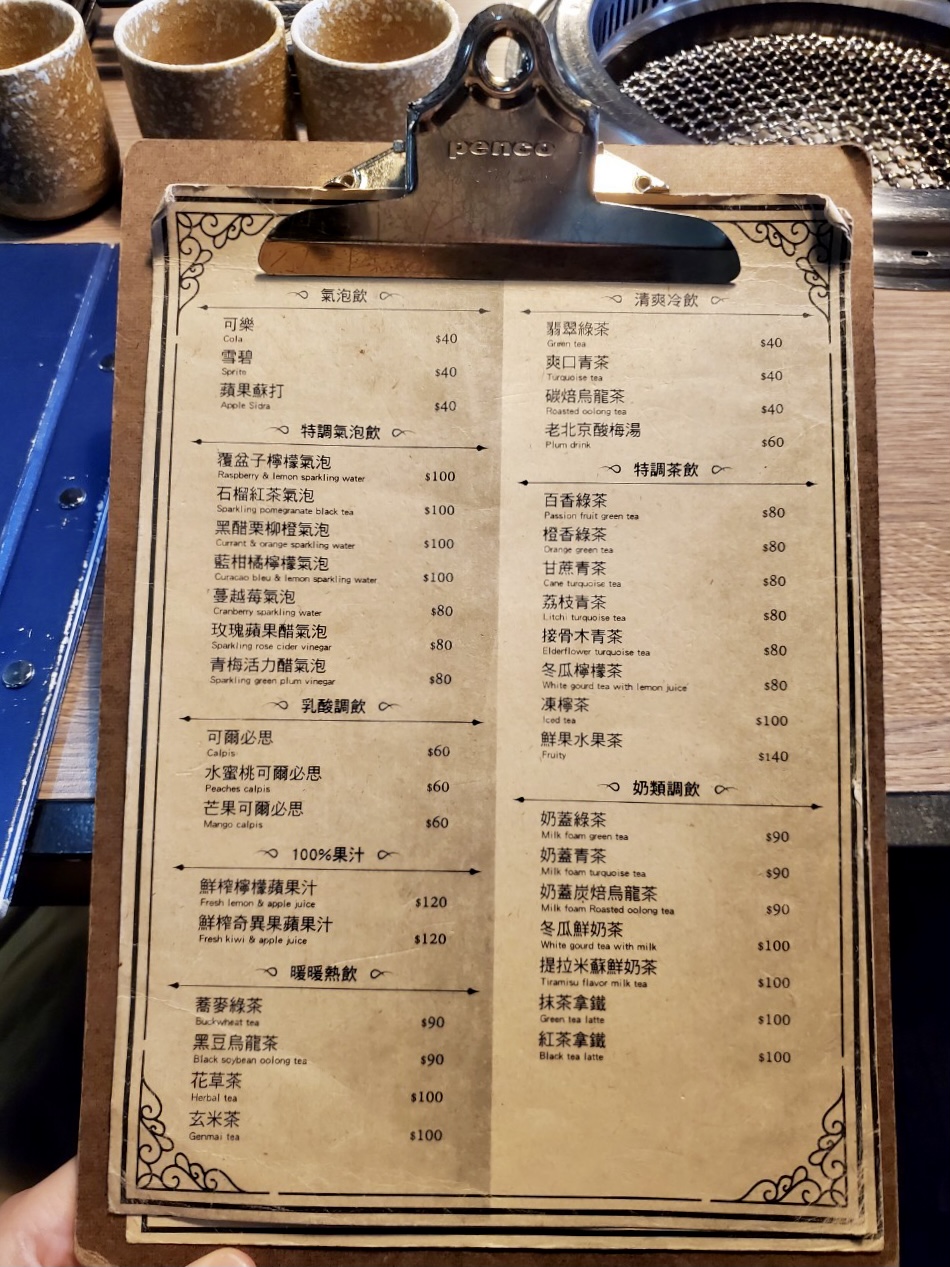 penco
氣泡飲
可樂
Cola
$40
雪碧
Sprite
$40
蘋果蘇打
Apple Sidra
$40
特調氣泡飲
覆盆子檸檬氣泡
Raspberry & lemon sparkling water
$100
石榴紅茶氣泡
Sparkling pomegranate black tea
$100
黑醋栗柳橙氣泡
Currant & orange sparkling water
$100
藍柑橘檸檬氣泡
Curacao bleu & lemon sparkling water
$100
蔓越莓氣泡
Cranberry sparkling water
$80
玫瑰蘋果醋氣泡
Sparkling rose cider vinegar
$80
青梅活力醋氣泡
Sparkling green plum vinegar
$80
乳酸調飲
可爾必思
Calpis
$60
水蜜桃可爾必思
Peaches calpis
$60
芒果可爾必思
Mango calpis
$60
100%果汁
鮮榨檸檬蘋果汁
Fresh lemon & apple juice
$120
鮮榨奇異果蘋果汁
Fresh kiwi & apple juice
$120
暖暖熱飲
蕎麥綠茶
Buckwheat tea
$90
黑豆烏龍茶
Black soybean oolong tea
$90
花草茶
Herbal tea
$100
玄米茶
Genmai tea
$100
清爽冷飲
翡翠綠茶
Green tea
$40
爽口青茶
Turquoise tea
$40
碳焙烏龍茶
Roasted oolong tea
$40
老北京酸梅湯
Plum drink
$60
特調茶飲
百香綠茶
Passion fruit green tea
$80
橙香綠茶
Orange green tea
$80
甘蔗青茶
Cane turquoise tea
$80
荔枝青茶
Litchi turquoise tea
$80
接骨木青茶
Elderflower turquoise tea
$80
冬瓜檸檬茶
White gourd tea with lemon juice
$80
凍檸茶
Iced tea
$100
鮮果水果茶
Fruity
$140
奶類調飲
奶蓋綠茶
Milk foam green tea
$90
奶蓋青茶
Milk foam turquoise tea
$90
奶蓋炭焙烏龍茶
Milk foam Roasted oolong tea
$90
冬瓜鮮奶茶
White gourd tea with milk
$100
提拉米蘇鮮奶茶
Tiramisu flavor milk tea
$100
抹茶拿鐵
Green tea latte
$100
紅茶拿鐵
Black tea latte
$100